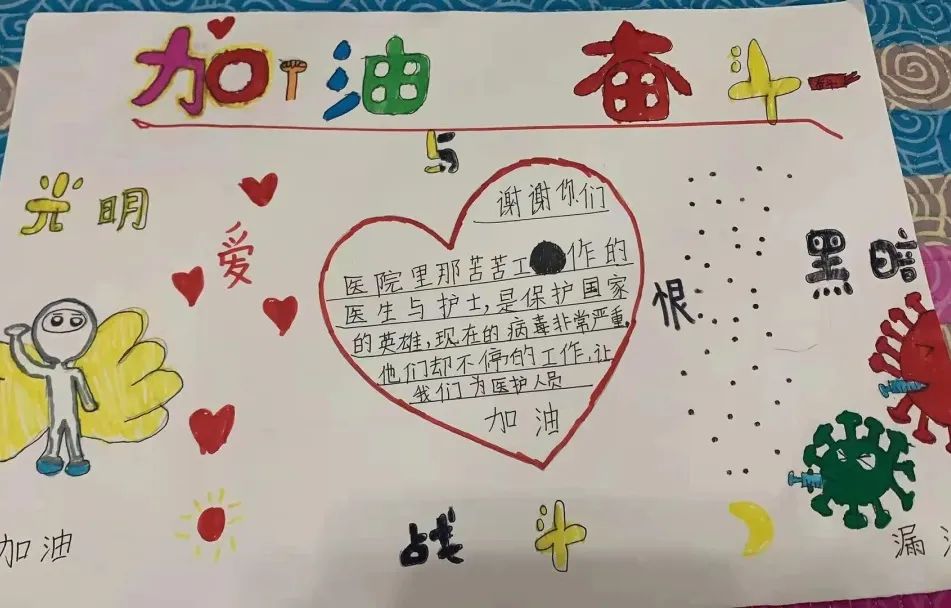 加油 奋斗
与
光明
爱
恨
黑暗
谢谢你们
医院里那苦苦工作的
医生与护士,是保护国家
的英雄,现在的病毒非常严重,
他们却不停的工作,让
我们为医护人员
加油
战斗
加油
漏